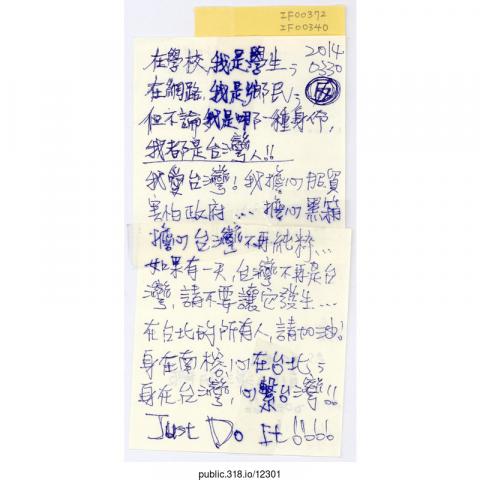 IF00372
IF00340
2014
0330
在學校,我是學生;
在網路,我是鄉民;
但不論我是哪一種身份,
我都是台灣人!!
我愛台灣!我擔心服貿
害怕政府...擔心黑箱
擔心台灣不再純粹...
如果有一天,台灣不再是台
灣,請不要讓它發生...
在台北的所有人,請加油!
身在南榕,心在台北;
身在台灣,心繫台灣!!
Just Do It!!!!
public.318.io/12301